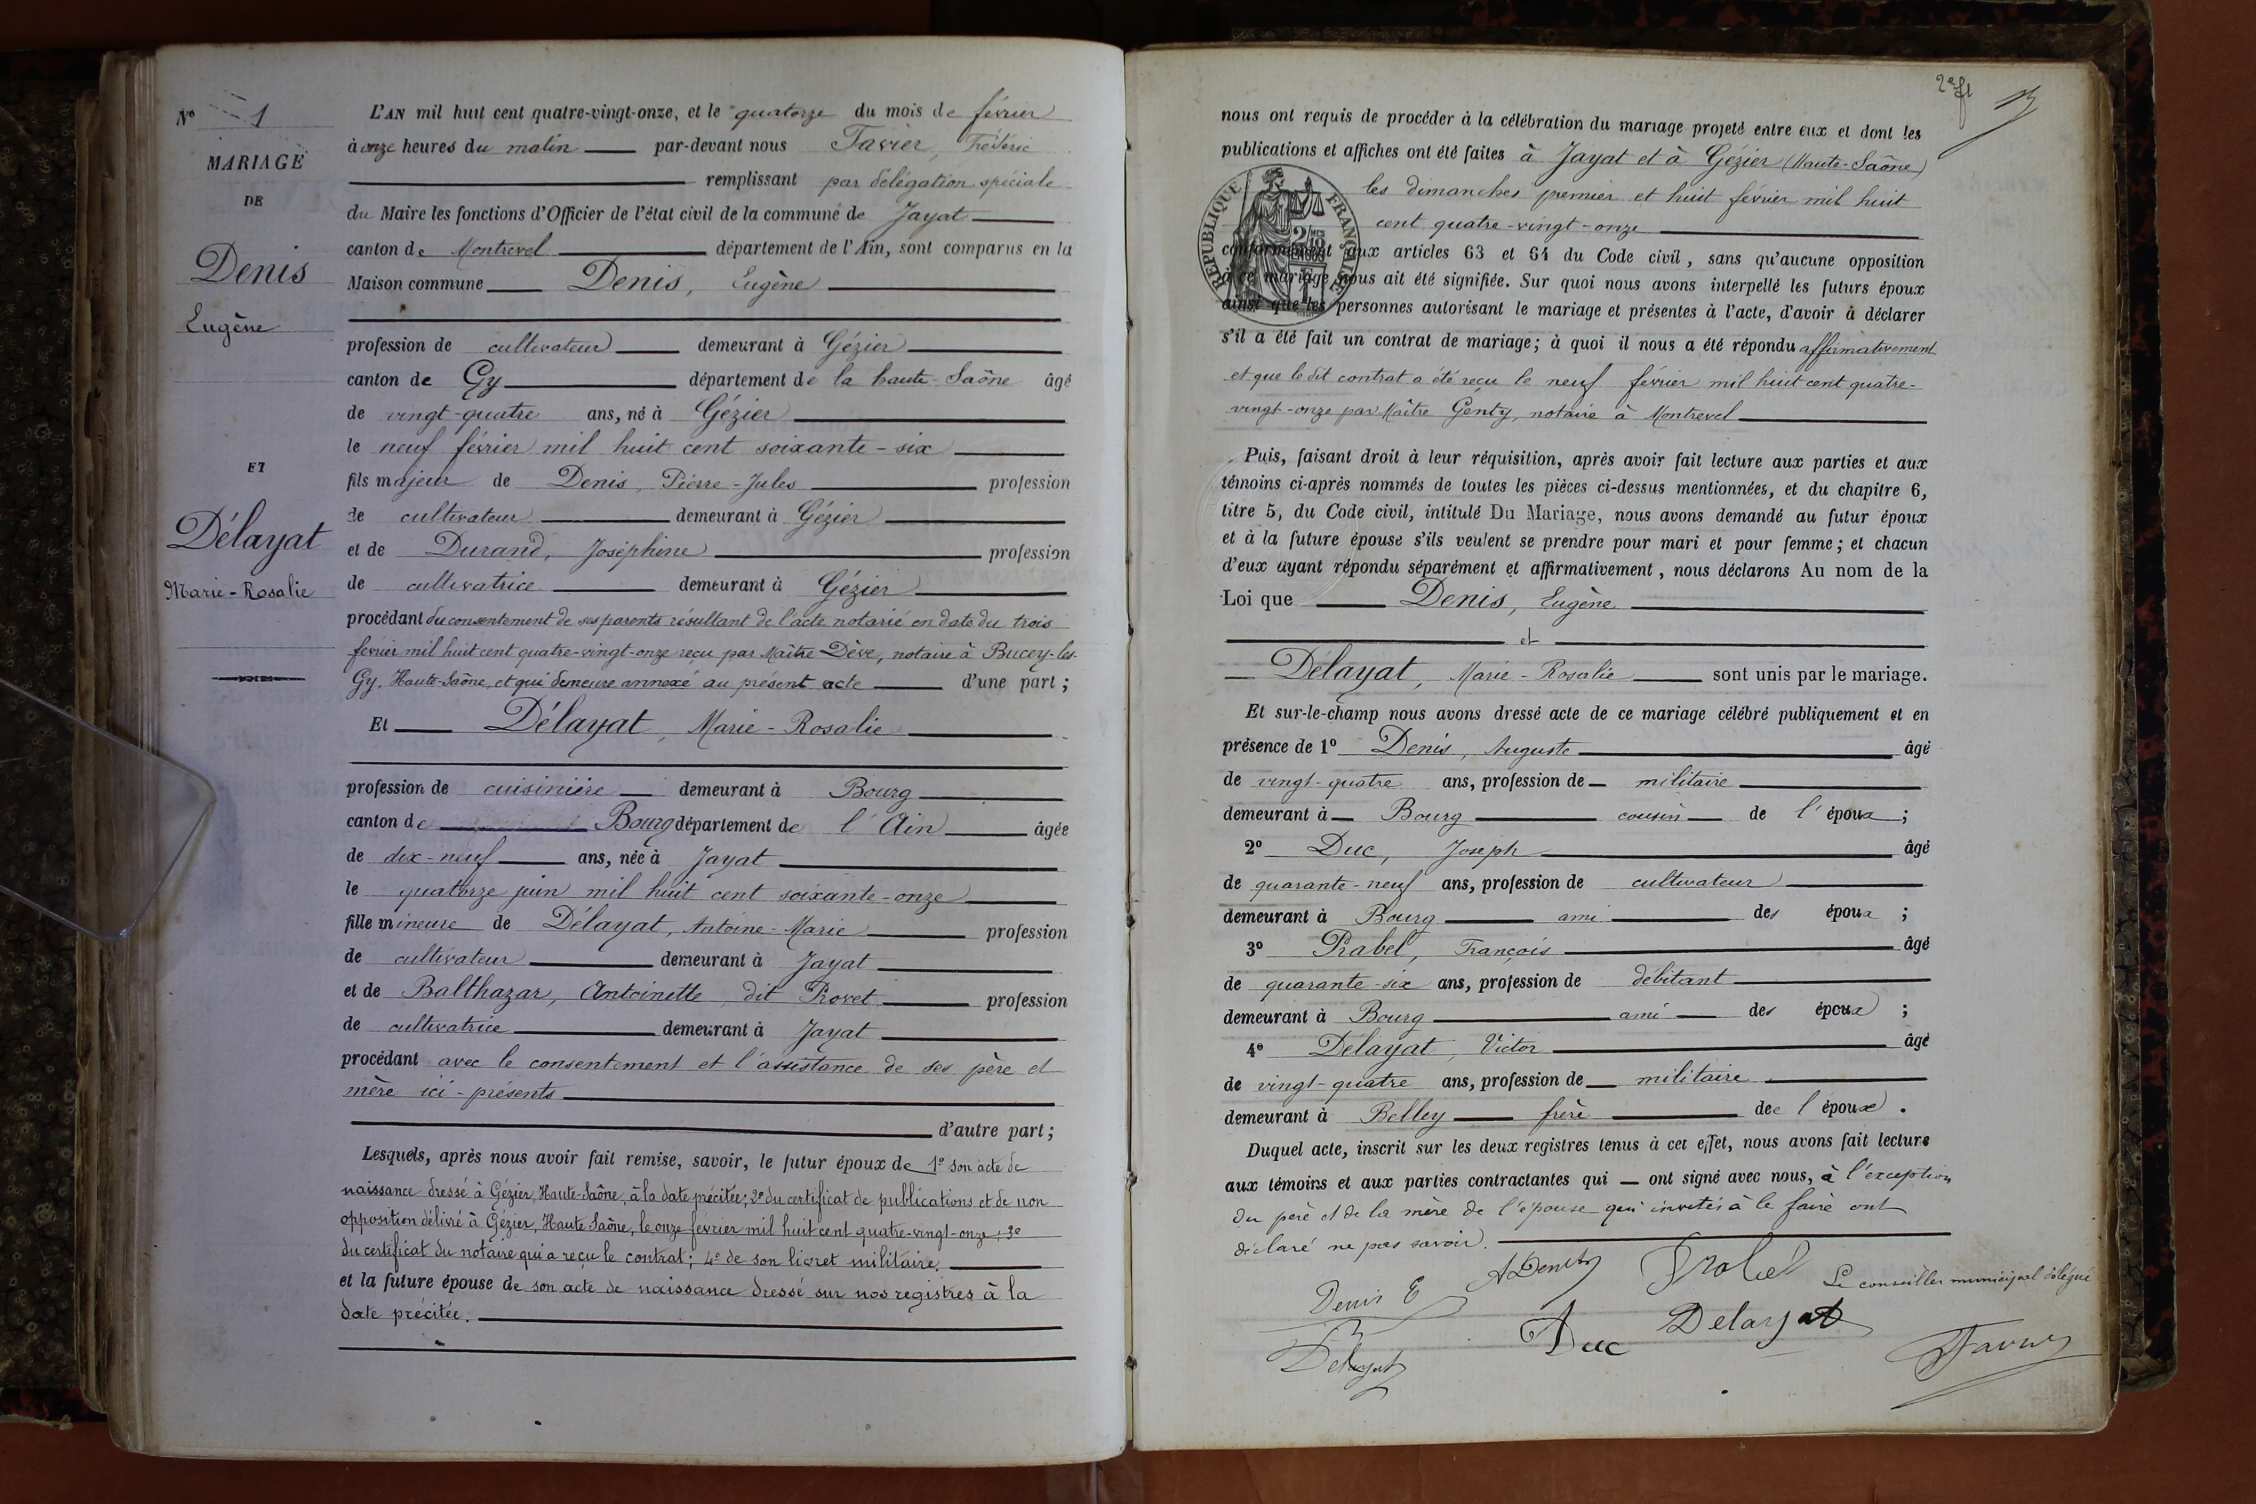 Nº 1
MARIAGE
DE
Denis
Eugène
ET
Délayat
Marie-Rosalie
L'AN mil huit cent quatre-vingt-onze, et le quatorze du mois de février
à onze heures du matin par-devant nous Favier, Fréderic
remplissant par délégation spéciale
du Maire les fonctions d'Officier de l'état civil de la commune de Jayat
canton de Montrevel département de l'Ain, sont comparus en la
Maison commune Denis, Eugène
profession de cultivateur demeurant à Gézier
canton de Gy département de la haute-Saône âgé
de vingt-quatre ans, né à Gézier
le neuf février mil huit cent soixante-six
fils majeur de Denis, Pierre-Jules profession
de cultivateur demeurant à Gézier
et de Durand, Joséphine profession
de cultivatrice demeurant à Gézier
procédant du consentement de ses parents résultant de l'acte notarié en date du trois
février mil huit cent quatre-vingt-onze reçu par Maître Dève, notaire à Bucey-les-
Gy, Haute-Saône, et qui demeure annexé au présent acte d'une part ;
Et Délayat, Marie-Rosalie
profession de cuisinière demeurant à Bourg
canton de Bourg département de l'Ain âgée
de dix-neuf ans, née à Jayat
le quatorze juin mil huit cent soixante-onze
fille mineure de Délayat, Antoine-Marie profession
de cultivateur demeurant à Jayat
et de Balthazar, Antoinette dit Provet profession
de cultivatrice demeurant à Jayat
procédant avec le consentement et l'assistance de ses père et
mère ici-présents
d'autre part ;
Lesquels, après nous avoir fait remise, savoir, le futur époux de 1º son acte de
naissance dressé à Gézier, Haute-Saône, à la date précitée; 2º du certificat de publications et de non
opposition délivré à Gézier, Haute Saône, le onze février mil huit cent quatre-vingt-onze; 3º
du certificat du notaire qui a reçu le contrat; 4º de son livret militaire.
et la future épouse de son acte de naissance dressé sur nos registres à la
date précitée.
2e ft
nous ont requis de procéder à la célébration du mariage projeté entre eux et dont les
publications et affiches ont été faites à Jayat et à Gézier (Haute-Saône)
les dimanches premier et huit février mil huit
cent quatre-vingt-onze
RÉPUBLIQUE FRANÇAISE
conformément aux articles 63 et 64 du Code civil, sans qu'aucune opposition
à ce mariage nous ait été signifiée. Sur quoi nous avons interpellé les futurs époux
ainsi que les personnes autorisant le mariage et présentes à l'acte, d'avoir à déclarer
s'il a été fait un contrat de mariage; à quoi il nous a été répondu affirmativement
et que le dit contrat a été reçu le neuf février mil huit cent quatre-
vingt-onze par Maître Genty, notaire à Montrevel
Puis, faisant droit à leur réquisition, après avoir fait lecture aux parties et aux
témoins ci-après nommés de toutes les pièces ci-dessus mentionnées, et du chapitre 6,
titre 5, du Code civil, intitulé Du Mariage, nous avons demandé au futur époux
et à la future épouse s'ils veulent se prendre pour mari et pour femme; et chacun
d'eux ayant répondu séparément et affirmativement, nous déclarons Au nom de la
Loi que Denis, Eugène
et
Délayat, Marie-Rosalie sont unis par le mariage.
Et sur-le-champ nous avons dressé acte de ce mariage célébré publiquement et en
présence de 1º Denis, Auguste âgé
de vingt-quatre ans, profession de militaire
demeurant à Bourg cousin de l'époux ;
2º Duc, Joseph âgé
de quarante-neuf ans, profession de cultivateur
demeurant à Bourg ami des époux ;
3º Prabel, François âgé
de quarante-six ans, profession de débitant
demeurant à Bourg ami des époux ;
4º Délayat, Victor âgé
de vingt-quatre ans, profession de militaire
demeurant à Belley frère de l'épouse.
Duquel acte, inscrit sur les deux registres tenus à cet effet, nous avons fait lecture
aux témoins et aux parties contractantes qui ont signé avec nous, à l'exception
du père et de la mère de l'épouse qui invités à le faire ont
déclaré ne pas savoir.
Denis E A Denis Prabel Le conseiller municipal délégué
Delayat Duc Delayat Favier